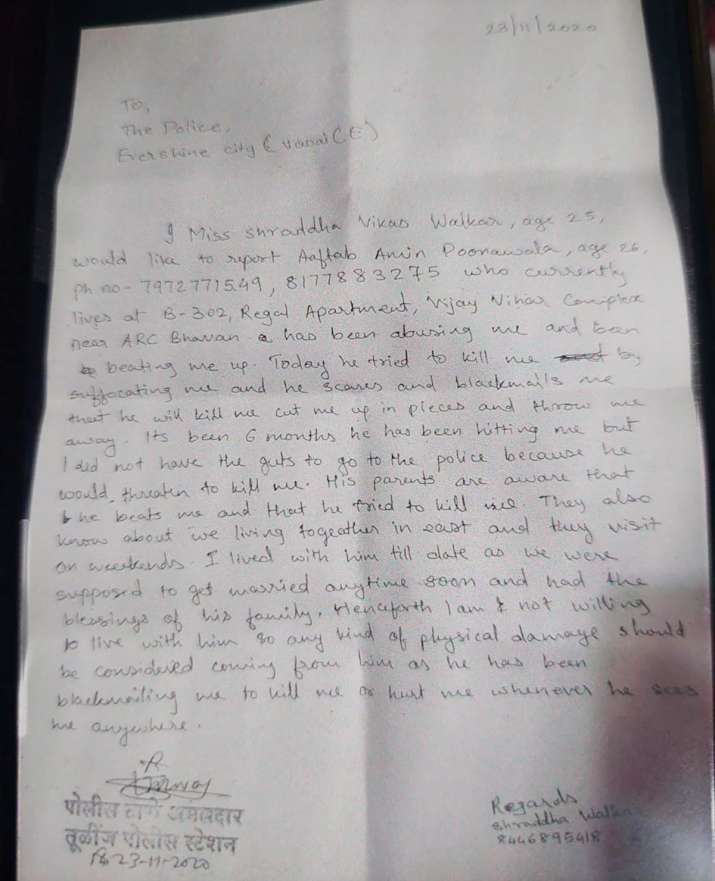 23/11/2020
To,
The Police,
Evershine city (Vasai (E)
I Miss Shraddha Vikas Walkar, age 25,
would like to report Aaftab Amin Poonawala, age 26,
ph no- 7972771549, 8177883275 who currently
lives at B-302, Regal Apartment, Vijay Vihar Complex
near ARC Bhavan has been abusing me and been
beating me up. Today he tried to kill me by
suffocating me and he scares and blackmails me
that he will kill me cut me up in pieces and throw me
away. Its been 6 months he has been hitting me but
I did not have the guts to go to the police because he
would threaten to kill me. His parents are aware that
he beats me and that he tried to kill me. They also
know about we living togeather in east and they visit
on weekends. I lived with him till date as we were
supposed to get married anytime soon and had the
blessings of his family. Henceforth I am not willing
to live with him so any kind of physical damage should
be considered coming from him as he has been
blackmailing me to kill me or hurt me whenever he sees
me anywhere.
पोलीस ठाणे अंमलदार
तूळींज पोलीस स्टेशन
23-11-2020
Regards
Shraddha Walkar
8446895418